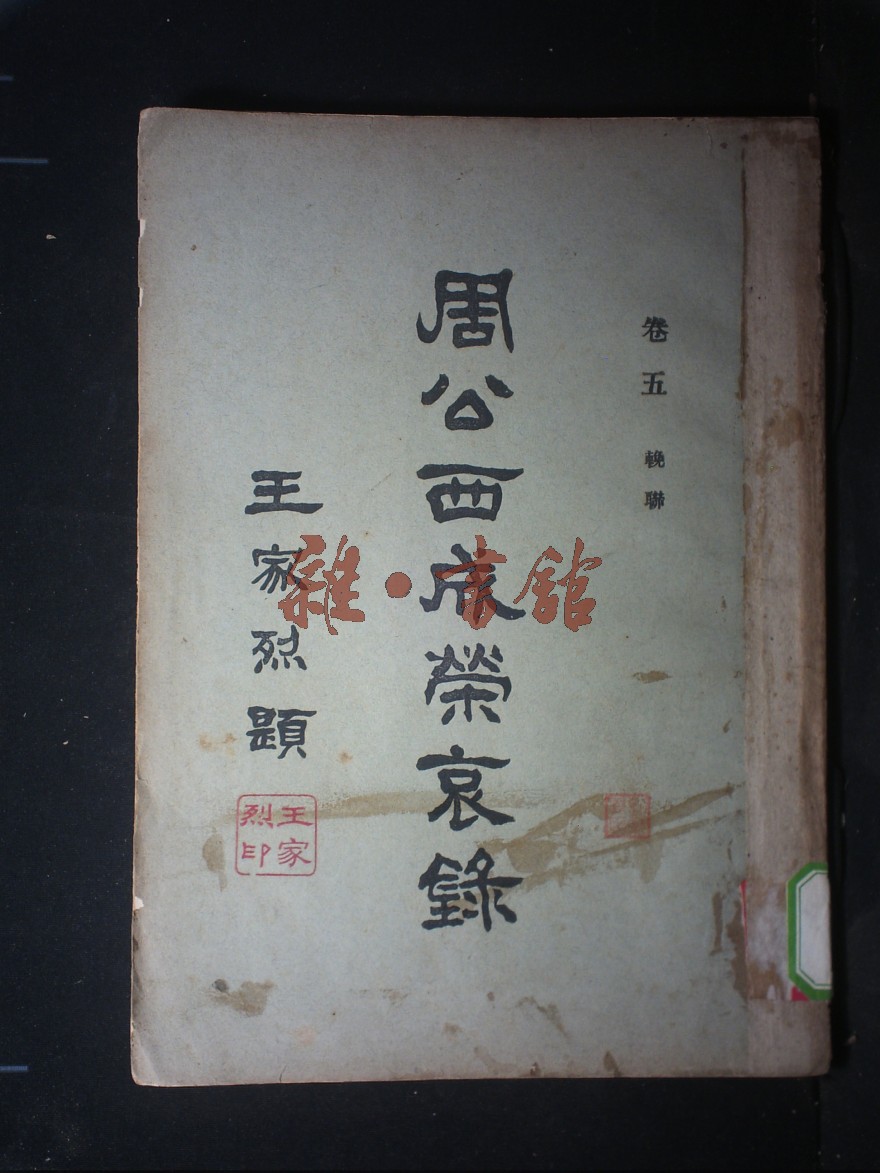 卷五 輓聯
周公西成榮哀錄
王家烈題
王家烈印
雜·書館